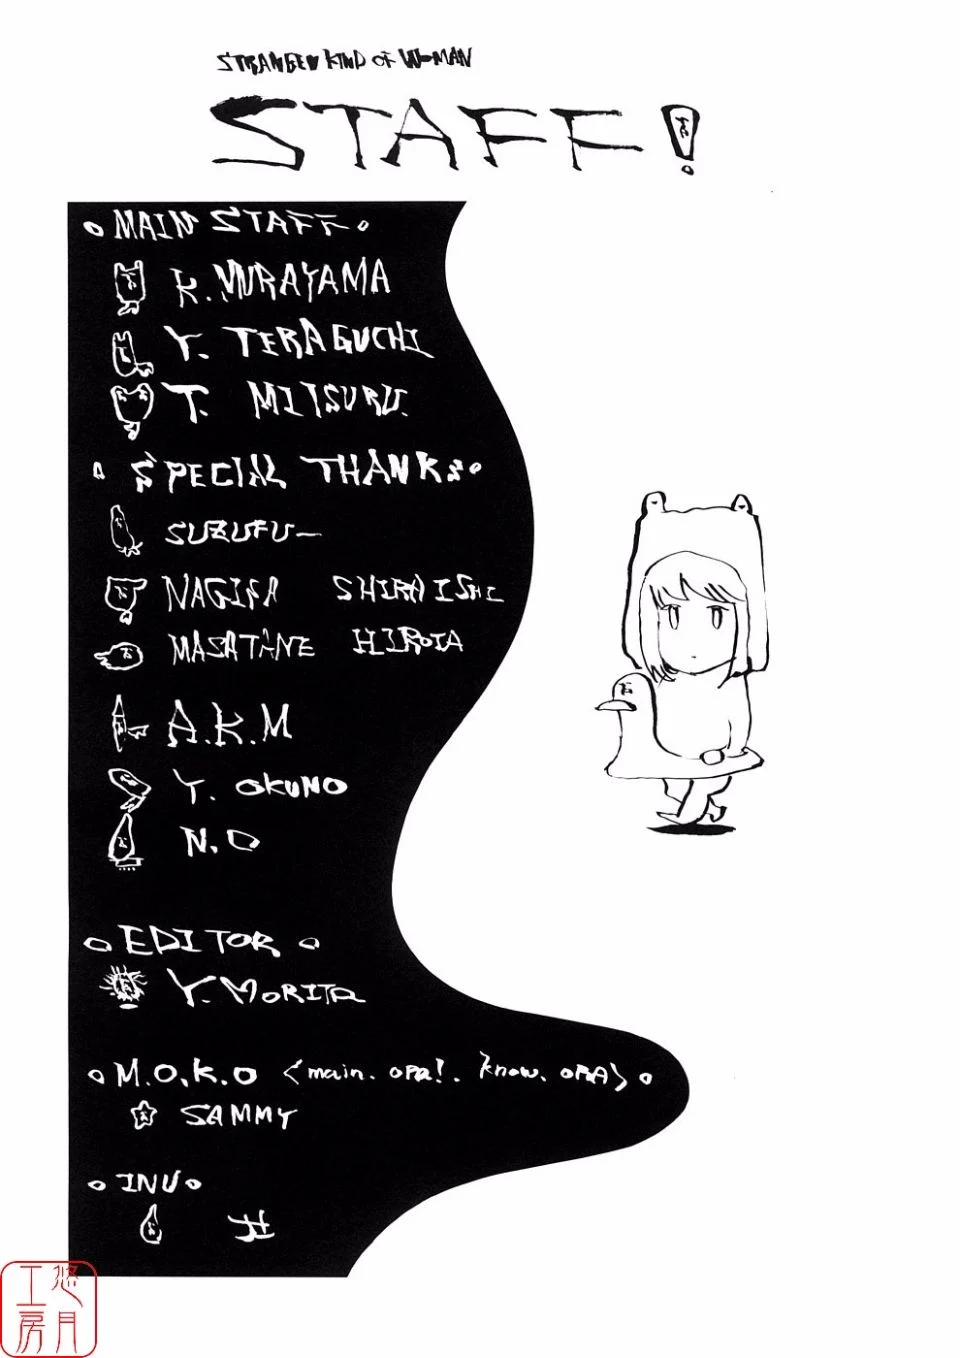 STRANGEN KIND OF WOMAN
STAFF!
MAIN STAFF
K. MURAYAMA
Y. TERAGUCHI
T. MITSURU.
SPECIAL THANKS
SUZUFU—
NAGISA SHIRAISHI
MASATANE HIROTA
A.K.M
Y. OKUNO
N.D
EDITOR
Y. MORITA
M.O.K.O <main. OPA!. know. OPA>
SAMMY
INU
井
悠月工房